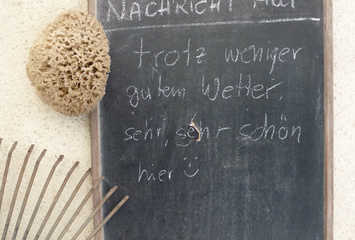 NACHRICHT
trotz weniger
gutem Wetter,
sehr, sehr schön
hier :)